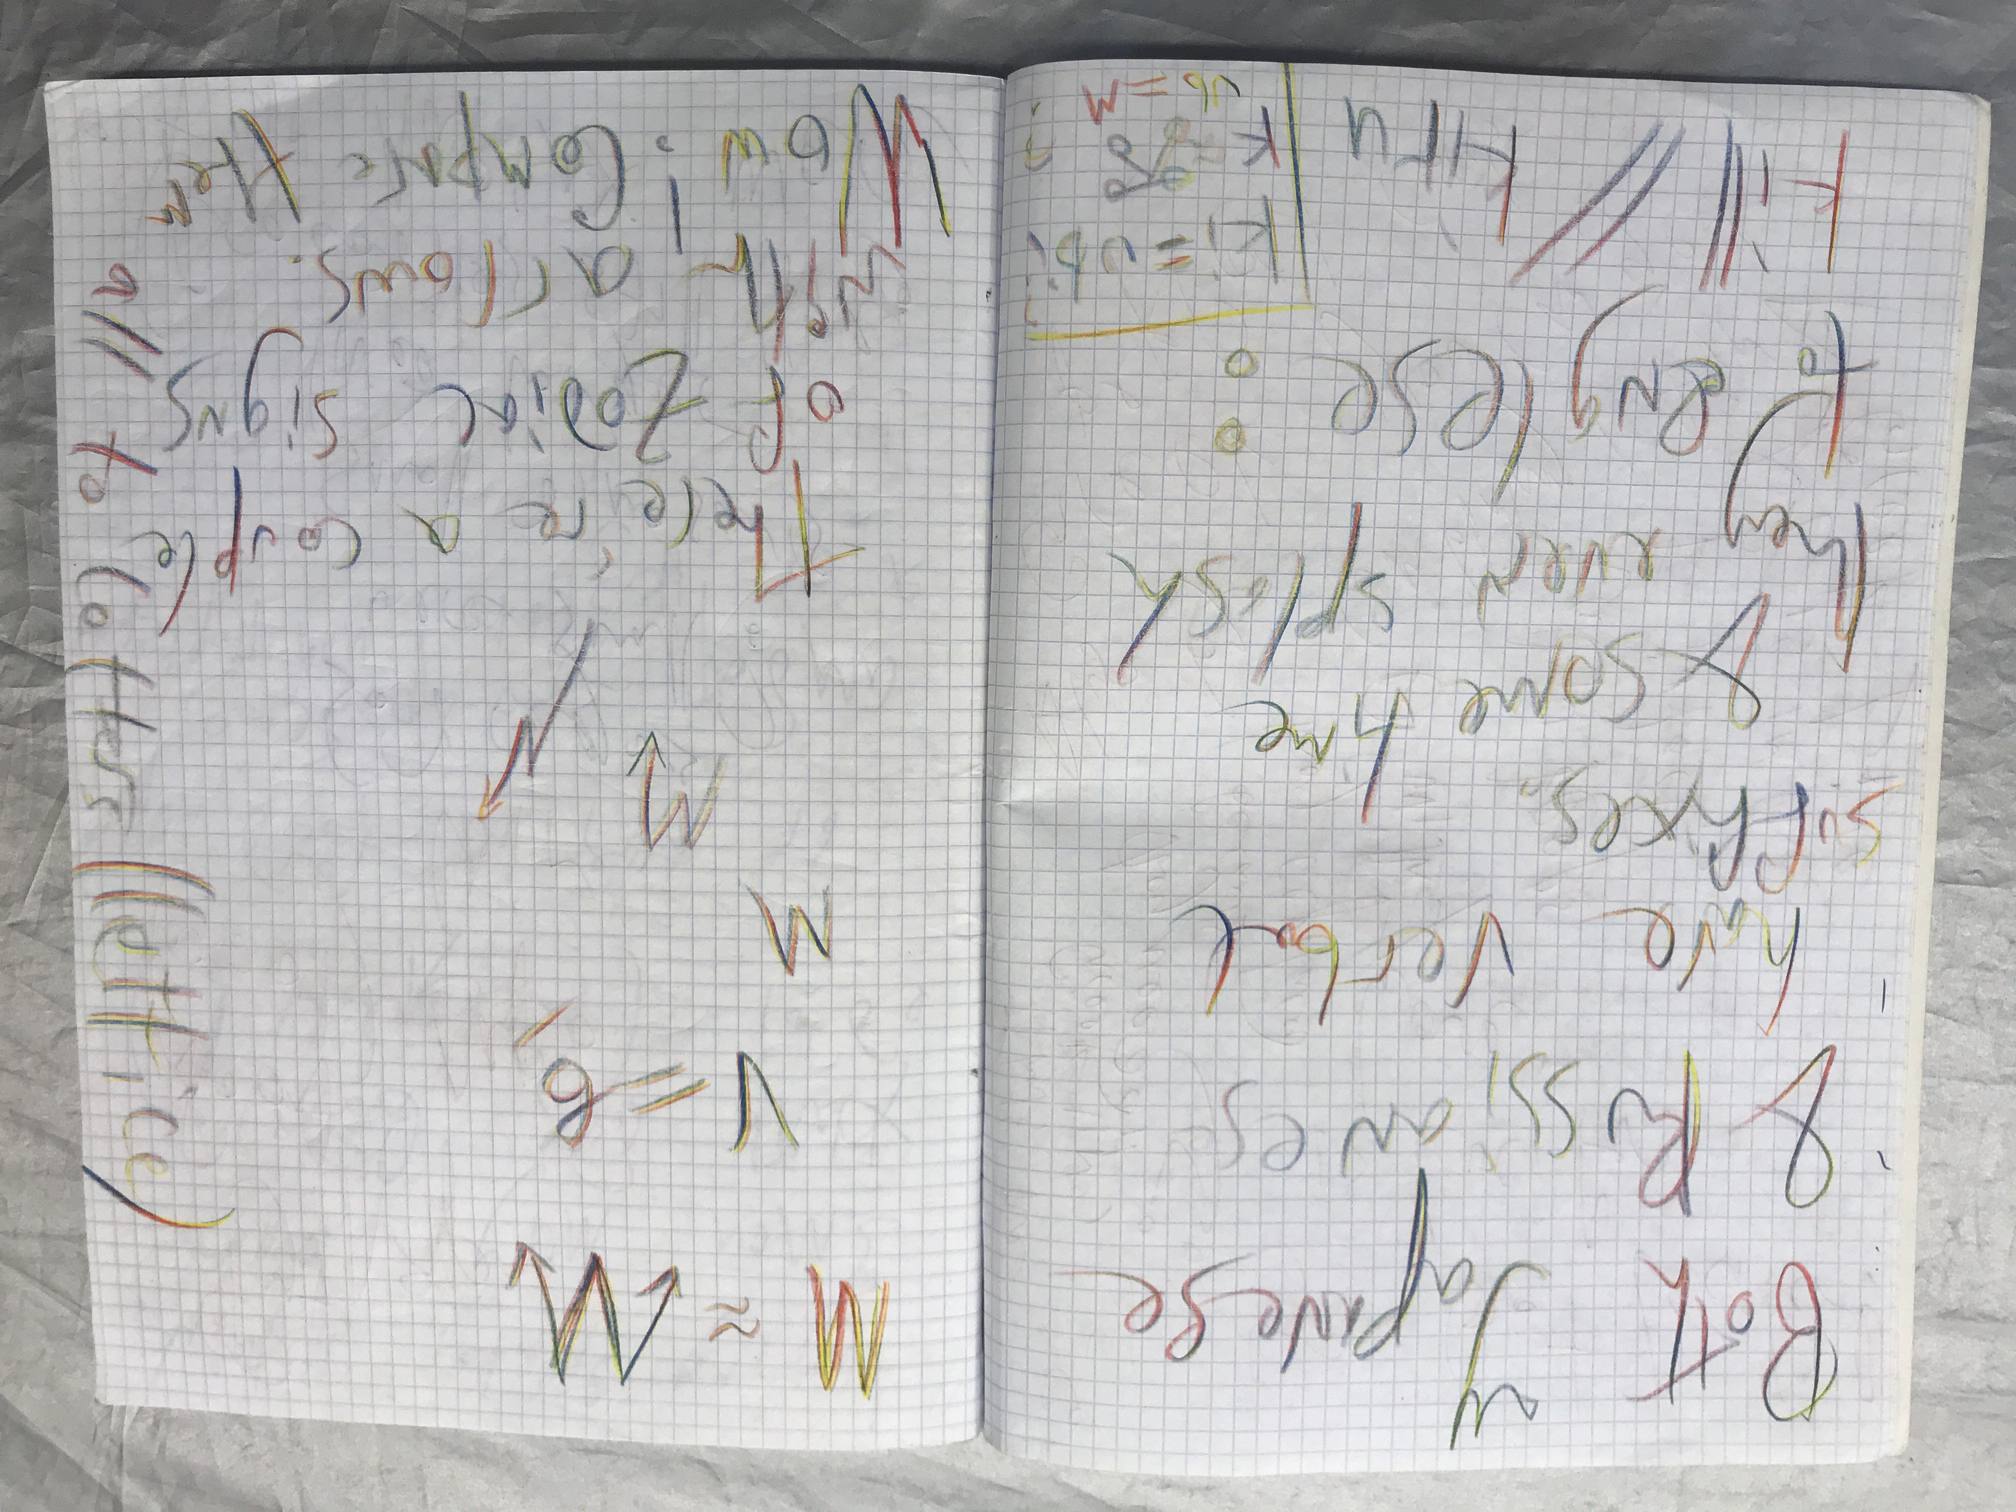 Both Japanese
& Russianese
have verbal
suffixes.
& some time
they even splash
to Englese:
Ki // // Kiru
Ki = ubi
M ≈ M
V = 6
M
M
There're a couple
of Zodiac signs
with arrows.
Now: Compare them
all to (lettice)